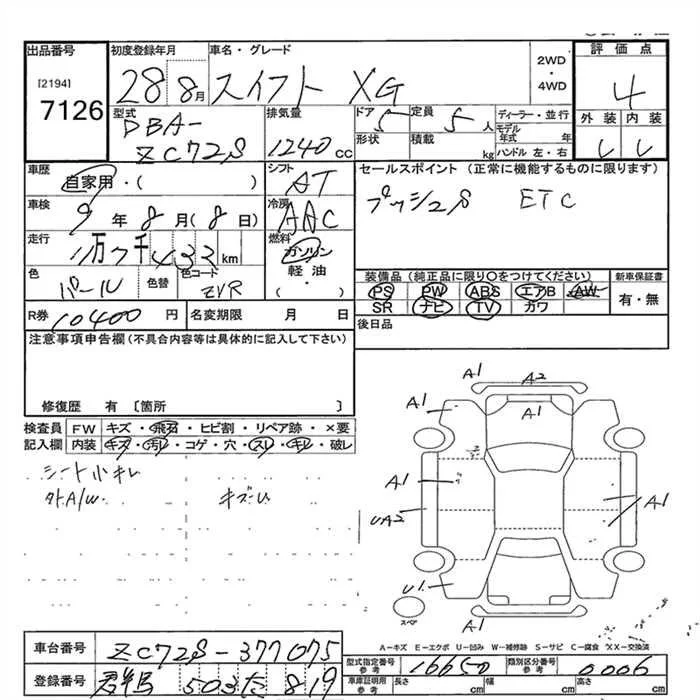 出品番号
[2194]
7126
初度登録年月
28 8月
車名・グレード
スイフト XG
2WD
・
4WD
評価点
4
外装 内装
型式
DBA-
ZC72S
排気量
1240 cc
ドア 5
形状
定員 5 人
積載 kg
ディーラー・並行
モデル年式 年
ハンドル 左・右
車歴
自家用・( )
シフト
AT
車検
9年8月(8日)
冷房
AAC
走行
11万7千433km
燃料
ガソリン
軽油
( )
色
パール
色替
色コード
ZVR
R券 10400円
名変期限 月 日
セールスポイント (正常に機能するものに限ります)
プッシュS ETC
装備品 (純正品に限り○をつけてください)
PS PW ABS エアB AW
SR ナビ TV カワ
新車保証書
有・無
後日品
注意事項申告欄(不具合内容等は具体的に記入して下さい)
修復歴 有 〔箇所 〕
検査員 FW キズ・飛石・ヒビ割・リペア跡・×要
記入欄 内装 キズ・汚レ・コゲ・穴・スレ・キレ・破レ
シート小キレ
外A/W. キズU
A1 A2
A1 A1
A1 A1
UA2
U1
A1
スペア
A-キズ E-エクボ U-凹み W-補修跡 S-サビ C-腐食 XX-交換済
車台番号 ZC72S-377075
登録番号 群馬 503 た 819
型式指定番号 参考 16650
類別区分番号 参考 0006
車庫証明用 参考 長さ cm 幅 cm 高さ cm